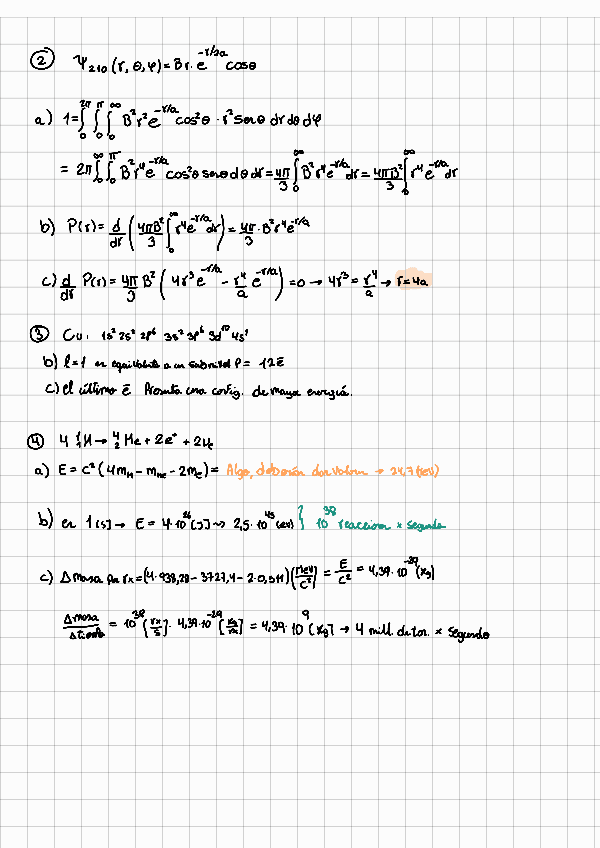 ② Ψ₂₁₀ (r, θ, φ) = B r · e^(-r/2a) cosθ
a) 1 = ∫₀^2π ∫₀^π ∫₀^∞ B² r² e^(-r/a) cos²θ · r² senθ dr dθ dφ
= 2π ∫₀^∞ ∫₀^π B² r⁴ e^(-r/a) cos²θ senθ dθ dr = 4π/3 ∫₀^∞ B² r⁴ e^(-r/a) dr = 4πB²/3 ∫₀^∞ r⁴ e^(-r/a) dr
b) P(r) = d/dr ( 4πB²/3 ∫₀^∞ r⁴ e^(-r/a) dr ) = 4π/3 · B² r⁴ e^(-r/a)
c) d/dr P(r) = 4π/3 B² ( 4r³ e^(-r/a) - r⁴/a e^(-r/a) ) = 0 → 4r³ = r⁴/a → r = 4a
③ Cu: 1s² 2s² 2p⁶ 3s² 3p⁶ 3d¹⁰ 4s¹
b) l = 1 es equivalente a un subnivel P = 12ē
c) el último ē Presenta una config. de mayor energía.
④ 4 ¹₁H → ⁴₂He + 2e⁺ + 2νe
a) E = c² (4mH - mHe - 2me) = Algo, deberán dar valores → 24,7 (eV)
b) en 1[s] → E = 4·10²⁶ [J] ~> 2,5·10⁴⁵ (eV) } 10³⁸ reacciones × segundo
c) Δmasa por rx = (4·938,28 - 3727,4 - 2·0,511) (MeV/c²) = E/c² = 4,39·10⁻²⁹ (kg)
Δmasa/Δtiempo = 10³⁸ [rx/s] · 4,39·10⁻²⁹ [kg/rx] = 4,39·10⁹ [kg] → 4 mill. de ton. × segundo